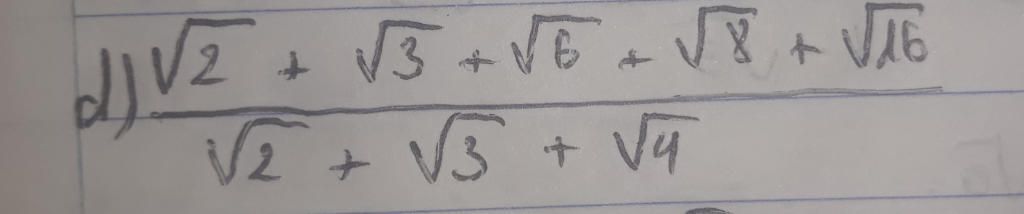 d) (√2 + √3 + √6 + √8 + √16) / (√2 + √3 + √4)